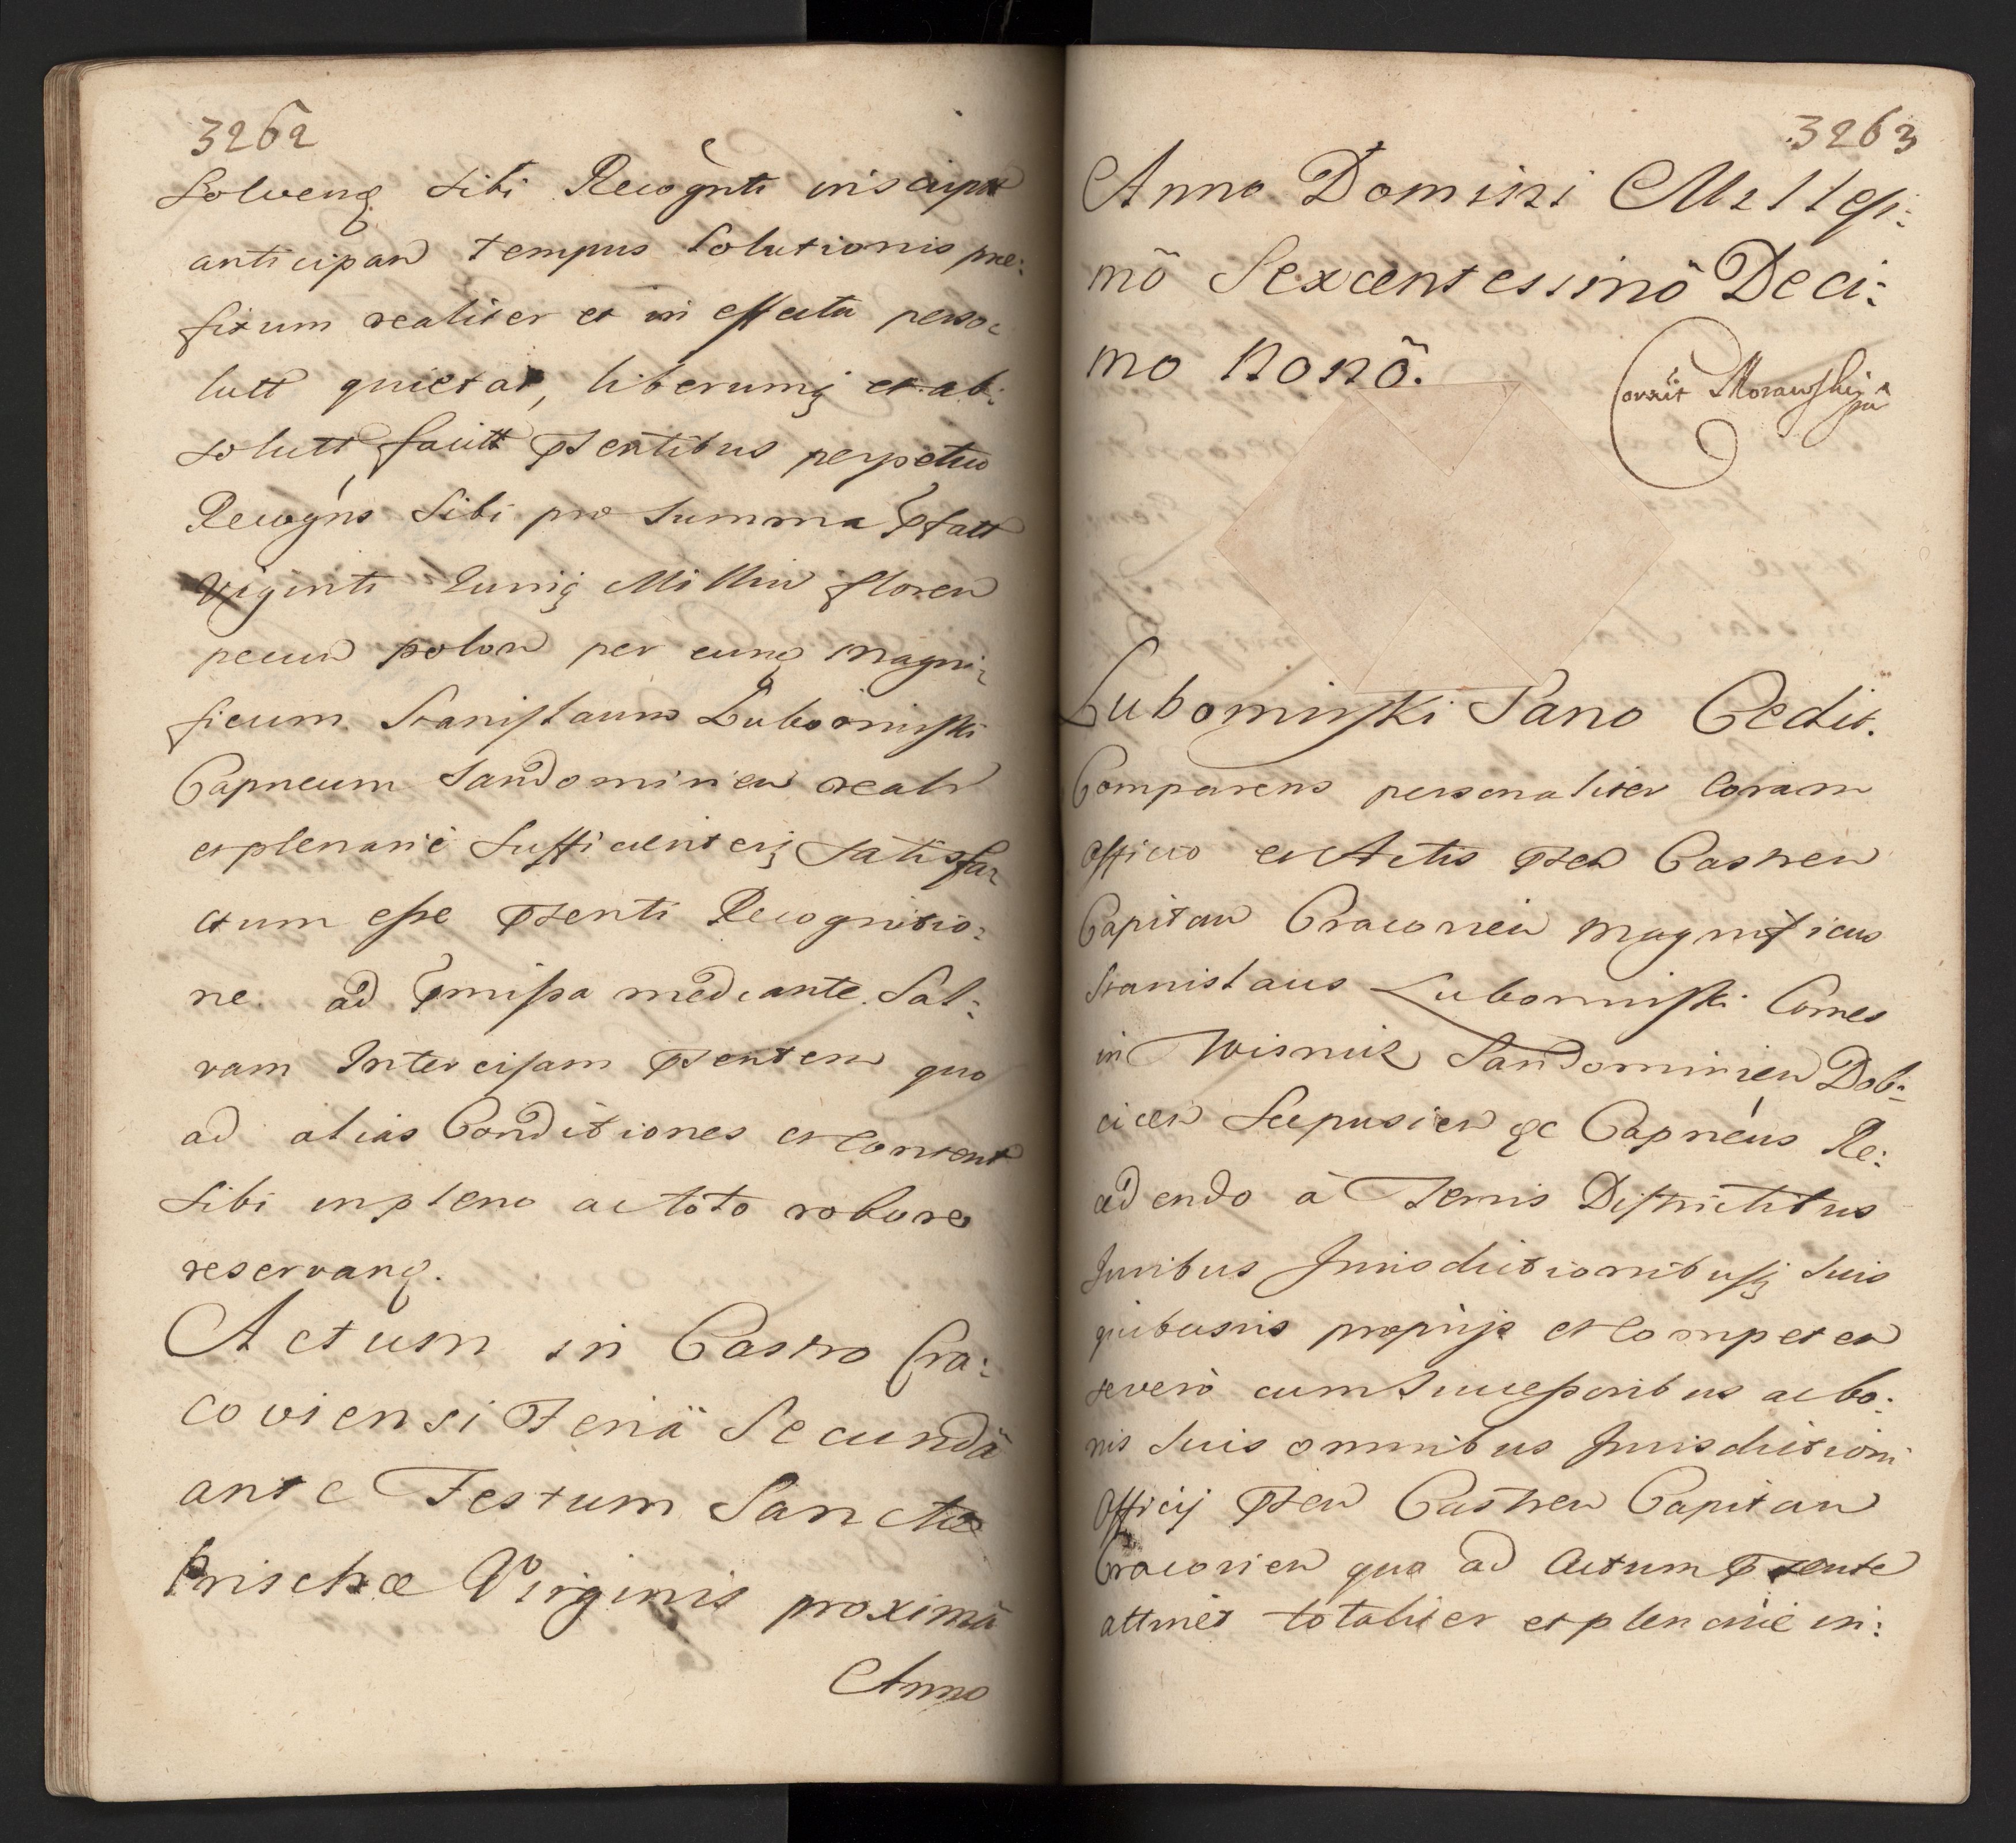 3262
Solvenɖ sibi Recognti inscript
anticipan tempus solutionis pre:
fixum realiter et in effectu perso:
lutt quietat, liberumq et ab:
solutt facitt psentibus perpetuo
Recogns sibi pro summa pfatt
Viginti Millin floren
pecun polon per eunɖ Magni:
ficum Stanislaum Lubomirski
Capneum Sandomirien realr
et plenarie sufficienterq satisfa:
ctum esse psenti Recognitio:
ne ad pmissa mediante. Sal:
vam Intercisam psentem quo
ad alias Conditiones et Content
sibi in pleno ac toto robore
reservanɖ.
Actum in Castro Cra:
coviensi Feriâ Secundâ
ante Festum Sanctæ
Prischæ Virginis proximâ
Anno
3263
Anno Domini Millesi:
mõ Sexcentessimõ Deci:
mo Nonõ.
Corrẽit Morawski
Lubomirski Sano Cedit.
Comparens personaliter Coram
Officio et Actis psen Castren
Capitan Cracovien Magnificus
Stanislaus Lubomirski Comes
in Wisnicz Sandomirien Dob:
cicen Scepusien &c Capneus Re:
cedendo à Terris Districtibus
Juribus Jurisdictionibusq suis
quibusvis proprijs et Competen
severò cum Successoribus ac bo:
nis suis omnibus Jurisdictioni
Officij psen Castren Capitan
Cracovien quo ad Actum psente
attinet totaliter et plenarie in: